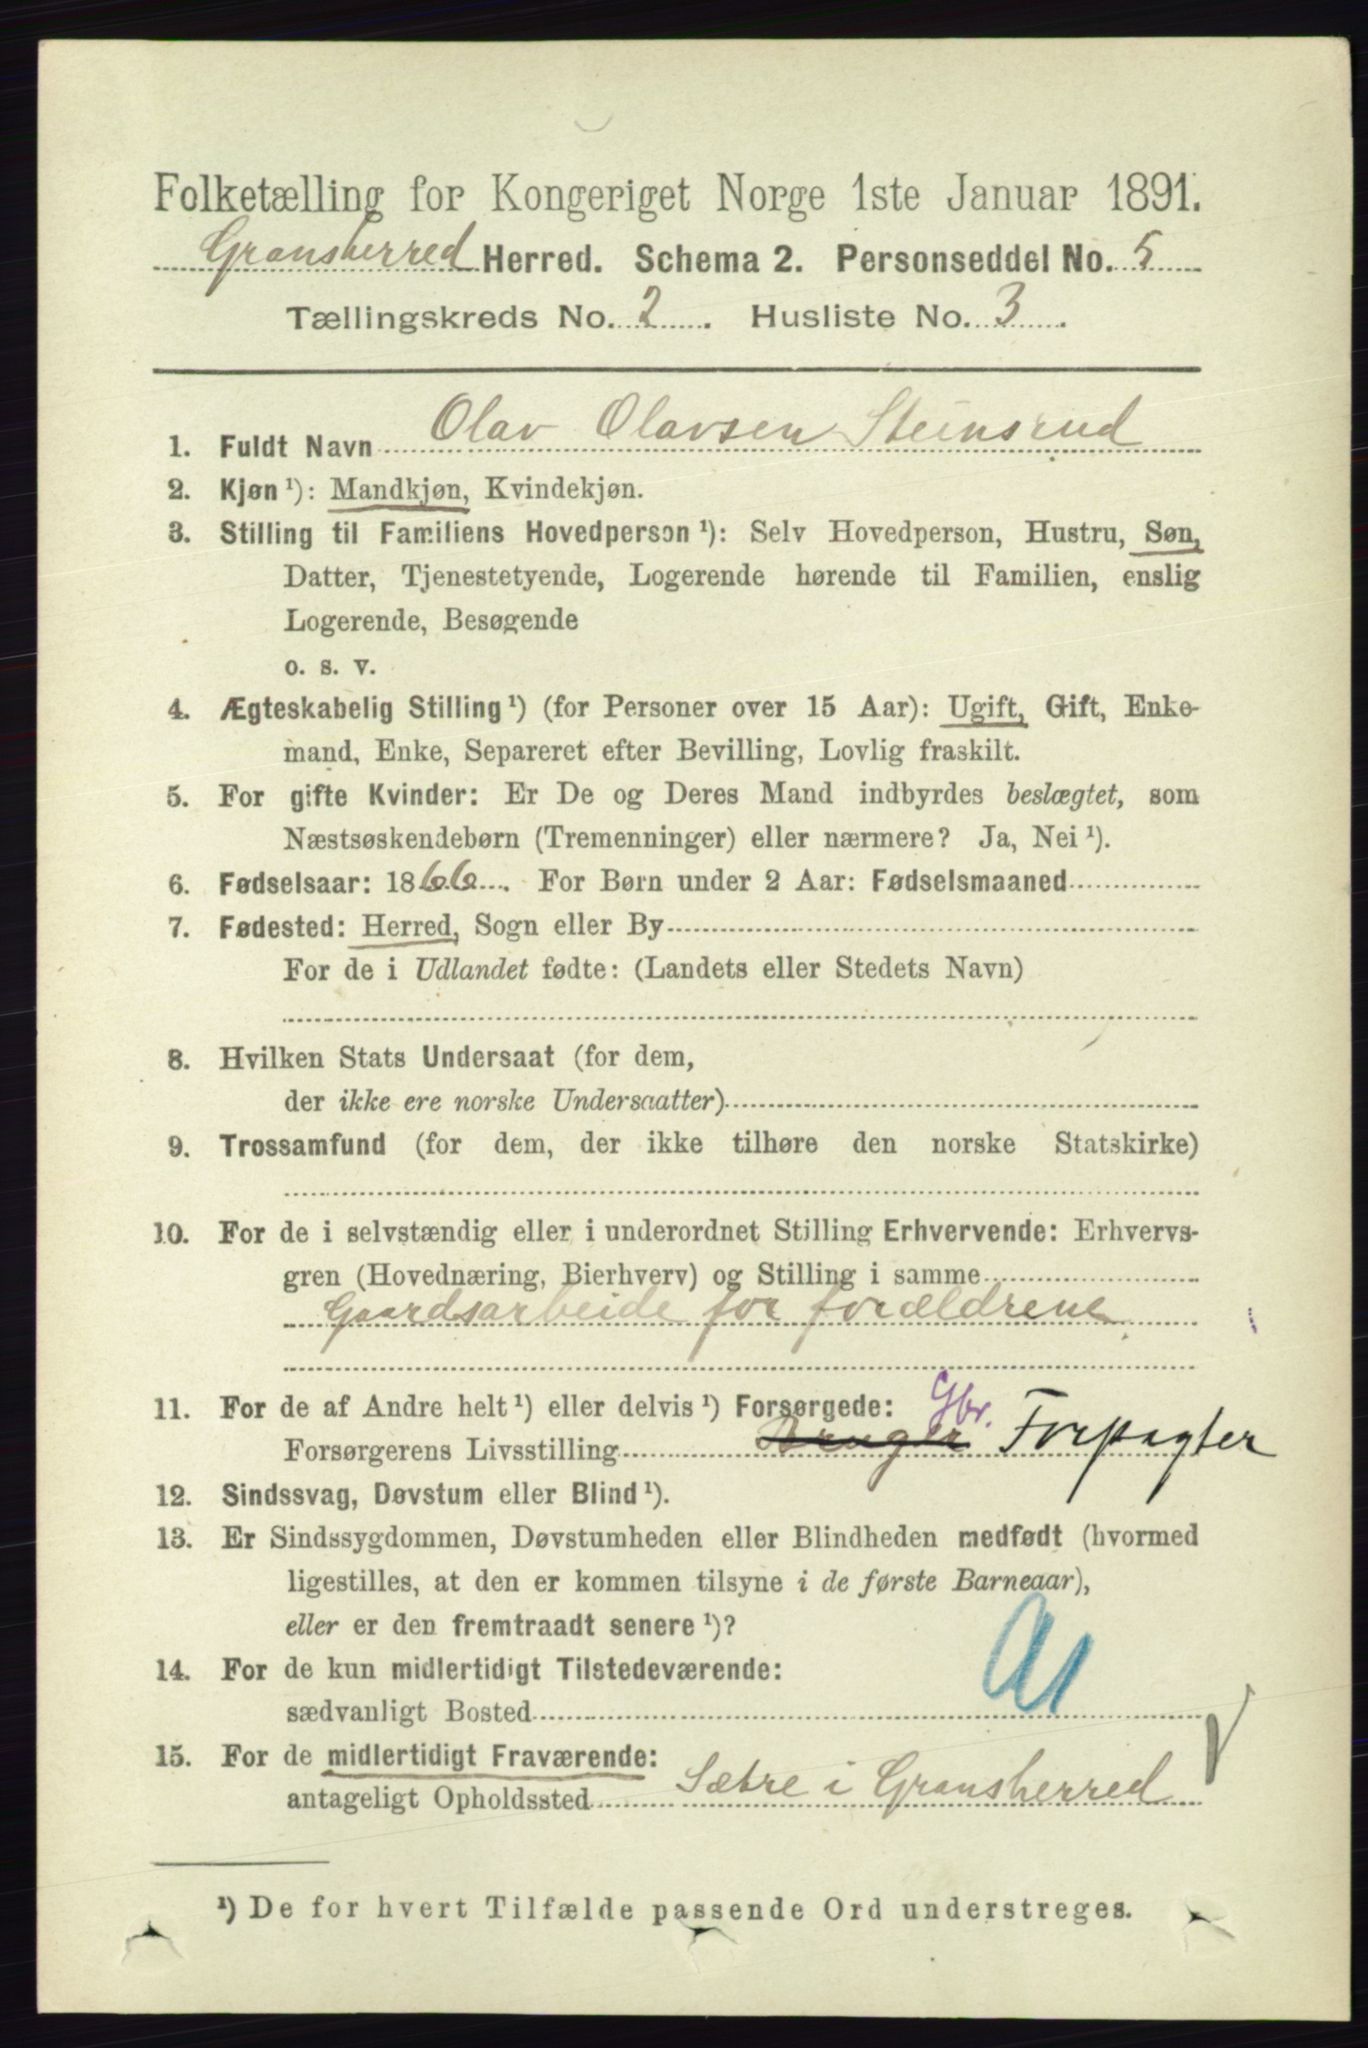 Folketælling for Kongeriget Norge 1ste Januar 1891.
Gransherred Herred. Schema 2. Personseddel No. 5
Tællingskreds No. 2. Husliste No. 3.
1. Fuldt Navn Olav Olavsen Steinsrud
2. Kjøn ¹): Mandkjøn, Kvindekjøn.
3. Stilling til Familiens Hovedperson ¹): Selv Hovedperson, Hustru, Søn,
Datter, Tjenestetyende, Logerende hørende til Familien, enslig
Logerende, Besøgende
o. s. v.
4. Ægteskabelig Stilling ¹) (for Personer over 15 Aar): Ugift, Gift, Enke-
mand, Enke, Separeret efter Bevilling, Lovlig fraskilt.
5. For gifte Kvinder: Er De og Deres Mand indbyrdes beslægtet, som
Næstsøskendebørn (Tremenninger) eller nærmere? Ja, Nei ¹).
6. Fødselsaar: 1866. For Børn under 2 Aar: Fødselsmaaned
7. Fødested: Herred, Sogn eller By
For de i Udlandet fødte: (Landets eller Stedets Navn)
8. Hvilken Stats Undersaat (for dem,
der ikke ere norske Undersaatter)
9. Trossamfund (for dem, der ikke tilhøre den norske Statskirke)
10. For de i selvstændig eller i underordnet Stilling Erhvervende: Erhvervs-
gren (Hovednæring, Bierhverv) og Stilling i samme
Gaardsarbeide for forældrene
11. For de af Andre helt ¹) eller delvis ¹) Forsørgede: Gbr.
Forsørgerens Livsstilling Bruger Forpagter
12. Sindssvag, Døvstum eller Blind ¹).
13. Er Sindssygdommen, Døvstumheden eller Blindheden medfødt (hvormed
ligestilles, at den er kommen tilsyne i de første Barneaar),
eller er den fremtraadt senere ¹)?
14. For de kun midlertidigt Tilstedeværende:
sædvanligt Bosted
15. For de midlertidigt Fraværende:
antageligt Opholdssted Sætre i Gransherred
¹) De for hvert Tilfælde passende Ord understreges.